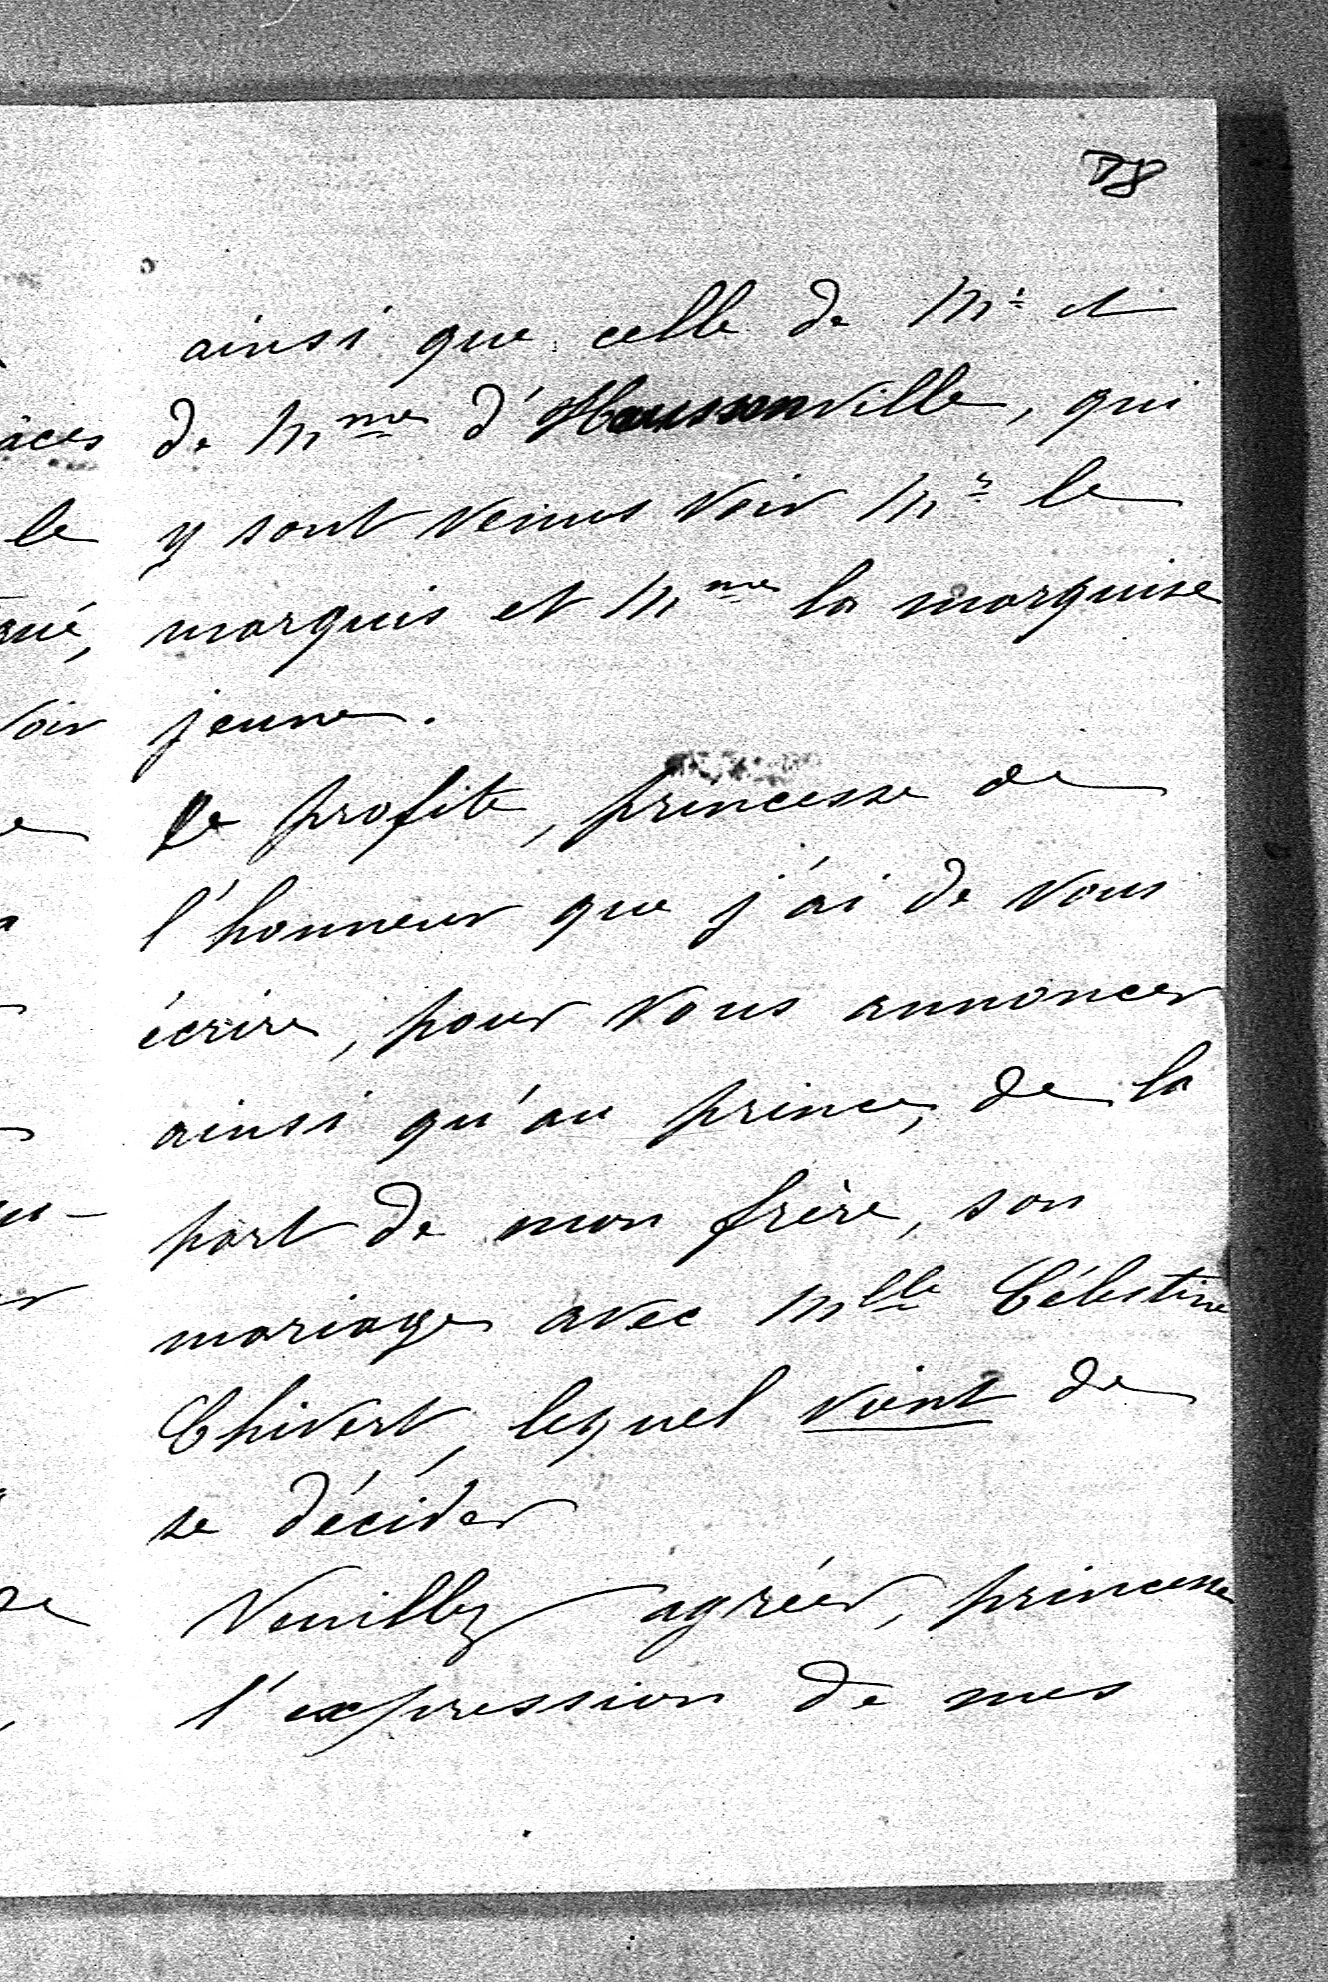 78
ainsi que celle de Mr et
de Mme d'Haussonville, qui
y sont venus voir Mr le
marquis et Mme la marquise
jeune.
Je profite, princesse de
l'honneur que j'ai de vous
écrire, pour vous annoncer
ainsi qu'au prince, de la
part de mon frère, son
mariage avec Mlle Célestine
Chivert, lequel vient de
se décider
Veuillez agréer, princesse
l'expression de mes